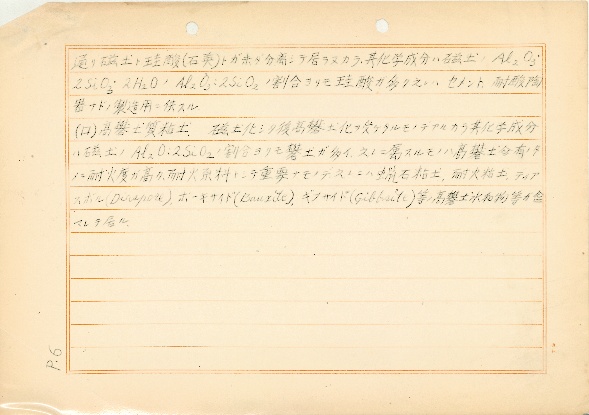 通リ磁土ト珪酸(石英)トガ未ダ分離シテ居ラヌカラ、其化学成分ハ磁土ノ Al₂O₃·
2SiO₂·2H₂O、Al₂O₃:2SiO₂ノ割合ヨリモ珪酸ガ多ク セメント、耐酸陶
器ナドノ製造用ニ供スル
(ロ)高礬土質粘土. 磁土化シタ後高礬土化ヲ デアルカラ其化学成分
ハ磁土ノ Al₂O₃:2SiO₂ノ割合ヨリモ礬土ガ多イ、之ニ属スルモノハ高礬土
ニ耐火度ガ高ク、耐火原料トシテ重要ナモノデ 粘土、耐火粘土、
(Diaspore) ボーキサイト(Bauxite)、ギブサイト(Gibbsite)等ノ高礬土 等ガ
レテ居ル.
P.6